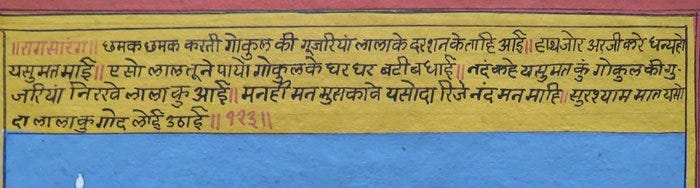 ॥रागसारंग॥ छमक छमक करती गोकुल की गूजरियां लालाके दरशन केताहि आई॥ हाथजोर अरजी करे धन्य हो
यसुमत माई॥ ए सो लाल तूने पायो गोकुल के घर घर बटी बधाई॥ नंद कहे यसुमत कुं गोकुल की गु
जरियां निरखे लाला कु आई॥ मनही मन मुसकावे यसोदा रिजे नंद मन माहि॥ सुरश्याम मात यसो
दा लालाकु गोद लोई उठाई॥ १२३॥